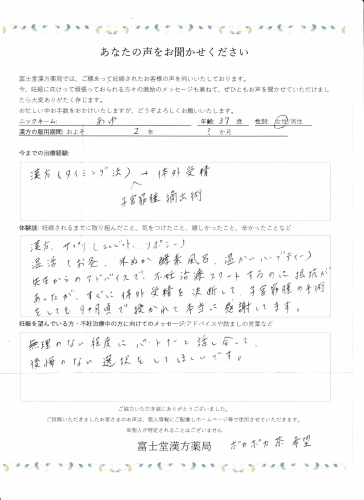 あなたの声をお聞かせください
富士堂漢方薬局では、ご縁あって妊娠されたお客様の声を伺いいたしております。
今、妊娠に向けって頑張っておられる方々の激励のメッセージも兼ねて、ぜひともお声を聞かせていただけましたら大変ありがたく存じます。
お忙しい中お手数をおかけいたしますが、どうぞよろしくお願いいたします。
ニックネーム: あゆ 年齢: 37 歳 性別: 女性 男性
漢方の服用期間: およそ 2 年 ? か月
今までの治療経験:
漢方(タイミング法) → 体外受精
子宮筋腫 摘出術
体験談: 妊娠されるまでに取り組んだこと、気をつけたこと、嬉しかったこと、辛かったことなど
漢方、サプリ(エレビット、リポシー)
温活(お灸、米ぬか酵素風呂、温かいハーブティー)
先生からのアドバイスで、不妊治療スタートするのに抵抗が
あったが、すぐに体外受精を決断して、子宮筋腫の手術
をしても9ヶ月で授かれて本当に感謝してます。
妊娠を望んでいる方・不妊治療中の方に向けてのメッセージ:アドバイスや励ましの言葉など
無理のない程度にパートナーと話し合って、
後悔のない選択をしてほしいです。
ご協力いただき誠にありがとうございました。
ご投稿いただきましたお客さまのお声は、個人情報にご配慮しホームページ等で使用させていただきます。
※個人が特定されることはございません
富士堂漢方薬局 ポカポカ茶 希望